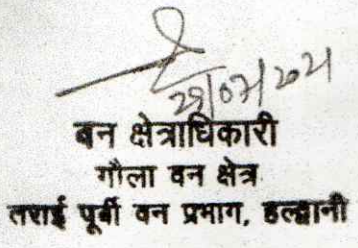 29/07/2021
वन क्षेत्राधिकारी
गौला वन क्षेत्र
तराई पूर्वी वन प्रभाग, हल्द्वानी